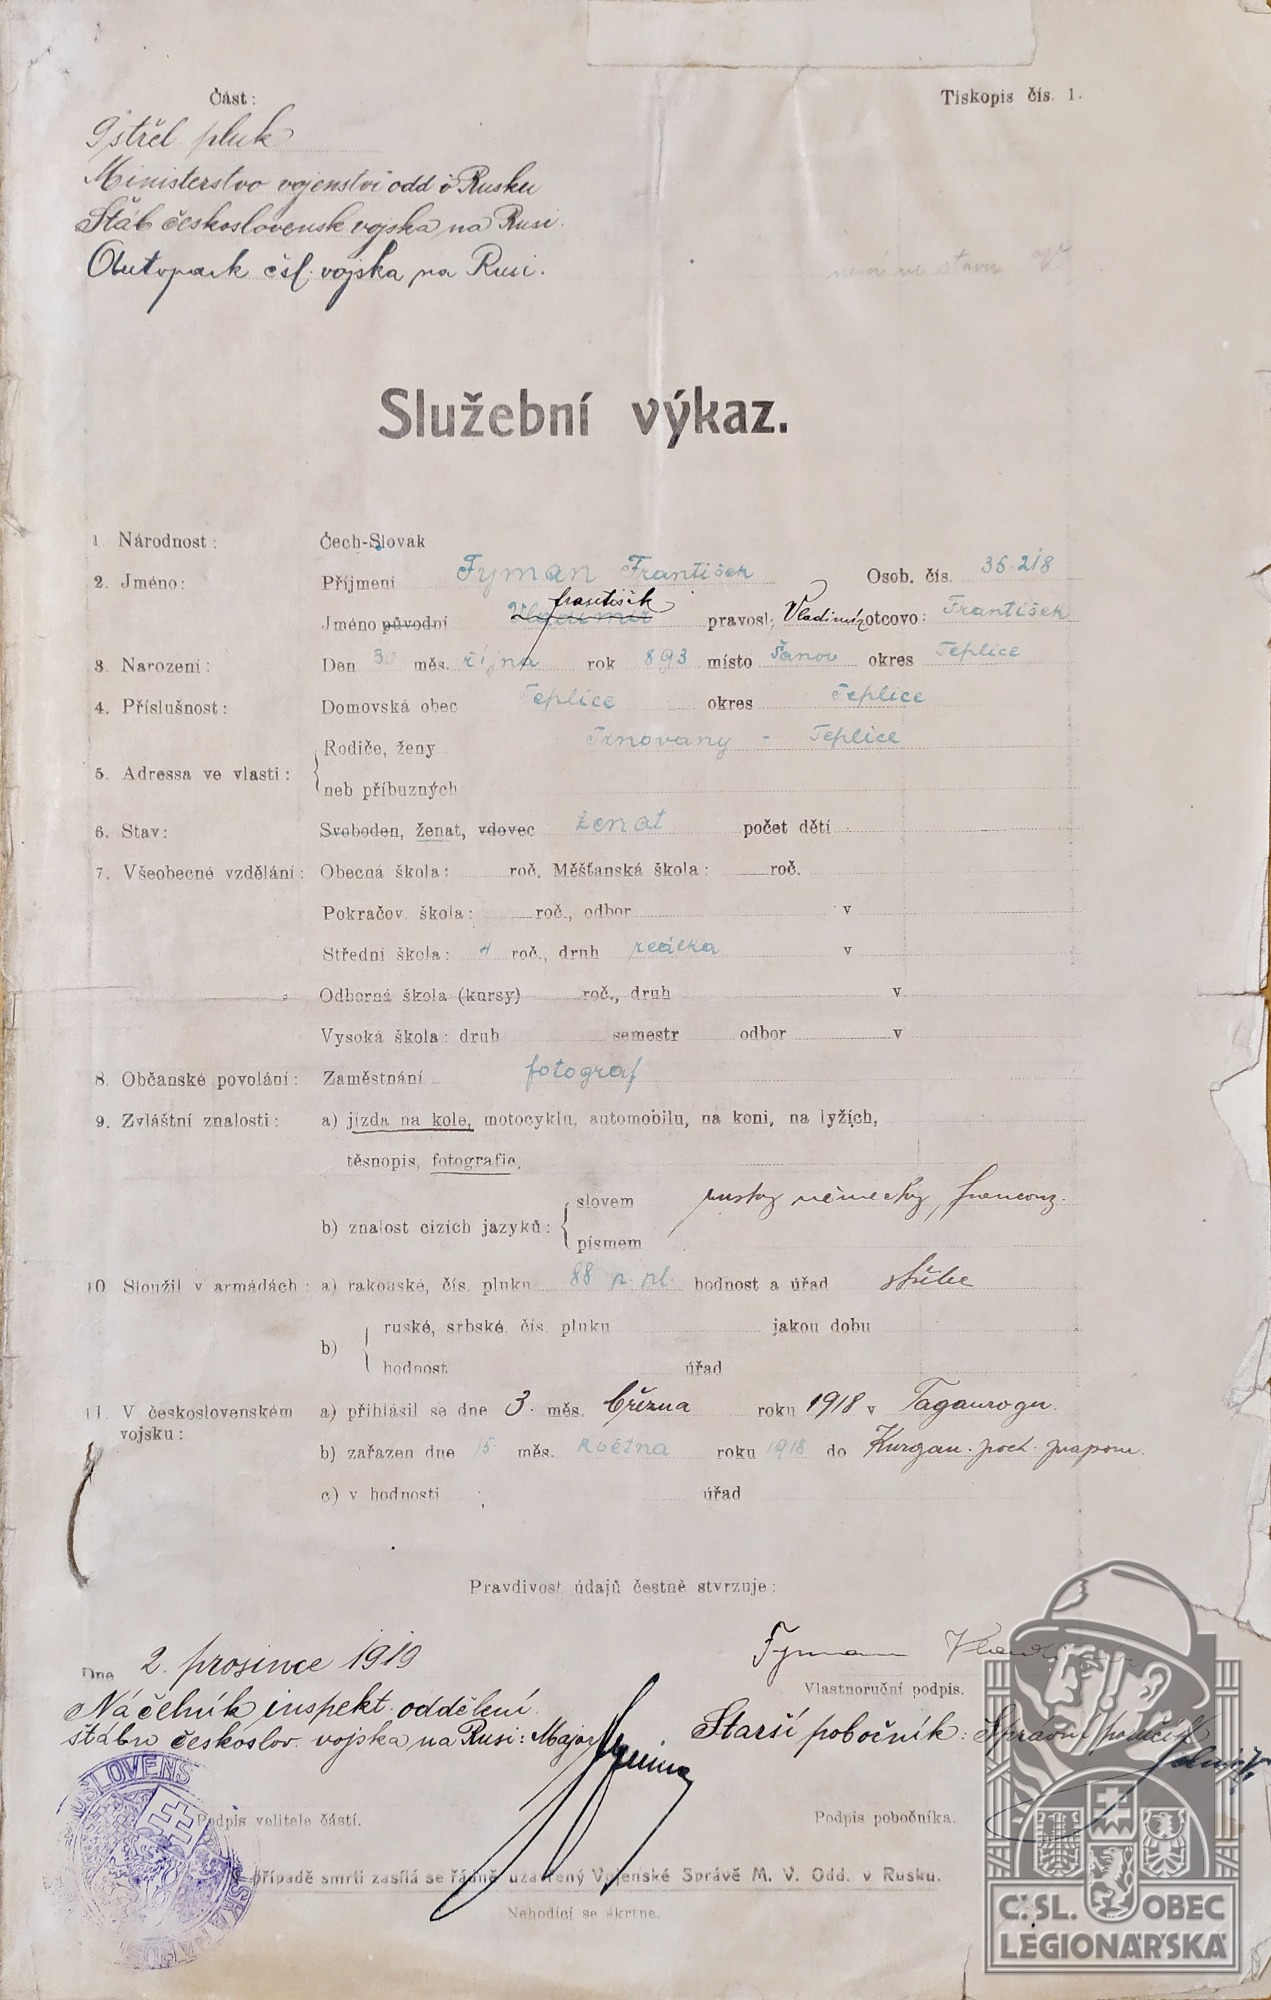 Část:
Tiskopis čís. 1.
9 střel pluk
Ministerstvo vojenství odd v Rusku
Štáb československ vojska na Rusi.
Autopark čsl. vojska na Rusi.
není ve stavu
Služební výkaz.
1. Národnost: Čech-Slovak
2. Jméno: Příjmení Fyman František Osob. čís. 36.218
františek
Jméno původní Vladimír pravosl: Vladimír otcovo: František
3. Narození: Den 30 měs. října rok 893 místo Šanov okres Teplice
4. Příslušnost: Domovská obec Teplice okres Teplice
5. Adressa ve vlasti: Rodiče, ženy Trnovany - Teplice
neb příbuzných
6. Stav: Svoboden, ženat, vdovec ženat počet dětí
7. Všeobecné vzdělání: Obecná škola: roč. Měšťanská škola: roč.
Pokračov. škola: roč., odbor v
Střední škola: 4 roč., druh reálka v
Odborná škola (kursy) roč., druh v
Vysoká škola: druh semestr odbor v
8. Občanské povolání: Zaměstnání fotograf
9. Zvláštní znalosti: a) jízda na kole, motocyklu, automobilu, na koni, na lyžích,
těsnopis, fotografie,
b) znalost cizích jazyků: slovem rusky německy, francouz.
písmem
10. Sloužil v armádách: a) rakouské, čís. pluku 88 p. pl. hodnost a úřad střelec
b) ruské, srbské, čís. pluku jakou dobu
hodnost úřad
11. V československém vojsku: a) přihlásil se dne 3. měs. března roku 1918 v Taganrogu.
b) zařazen dne 15 měs. května roku 1918 do Kurgan. poch. prapom.
c) v hodnosti úřad
Pravdivost údajů čestně stvrzuje:
Dne 2. prosince 1919
Fyman Vladimír
Vlastnoruční podpis.
Náčelník inspekt. oddělení
štábu českoslov. vojska na Rusi: Major
Starší pobočník: Správní poručík
Podpis velitele části.
Podpis pobočníka.
V případě smrti zasílá se řádně uzavřený Vojenské Správě M. V. Odd. v Rusku.
Nehodící se škrtne.
Č.SL. OBEC
LEGIONÁŘSKÁ